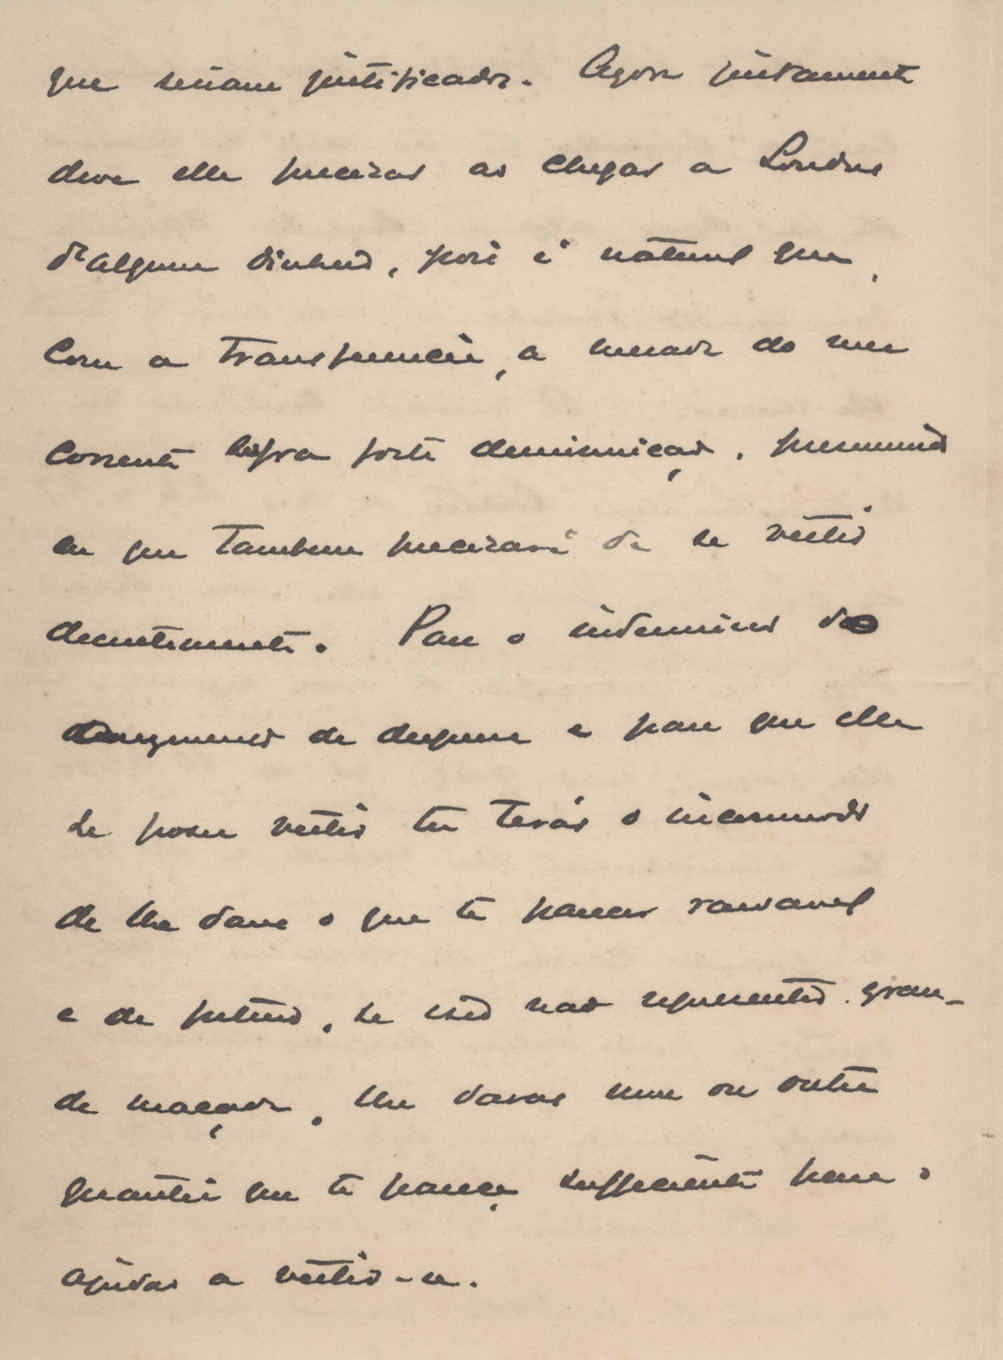 que seriam justificados. Agora justamente
deve elle precizar ao chegar a Londres
d'algum dinheiro, pois é natural que,
com a transferencia, a mezada do mez
corrente soffra forte deminuição, presumindo
eu que tambem precizará de se vestir
decentemente. Para o indemnizar do
de despeza e para que elle
se possa vestir tu terás o incommodo
de lhe dares o que te parecer razoavel
e de futuro, se isso não representar gran-
de maçada, lhe darás uma ou outra
quantia que te pareça sufficiente para o
ajudar a vestir-se.